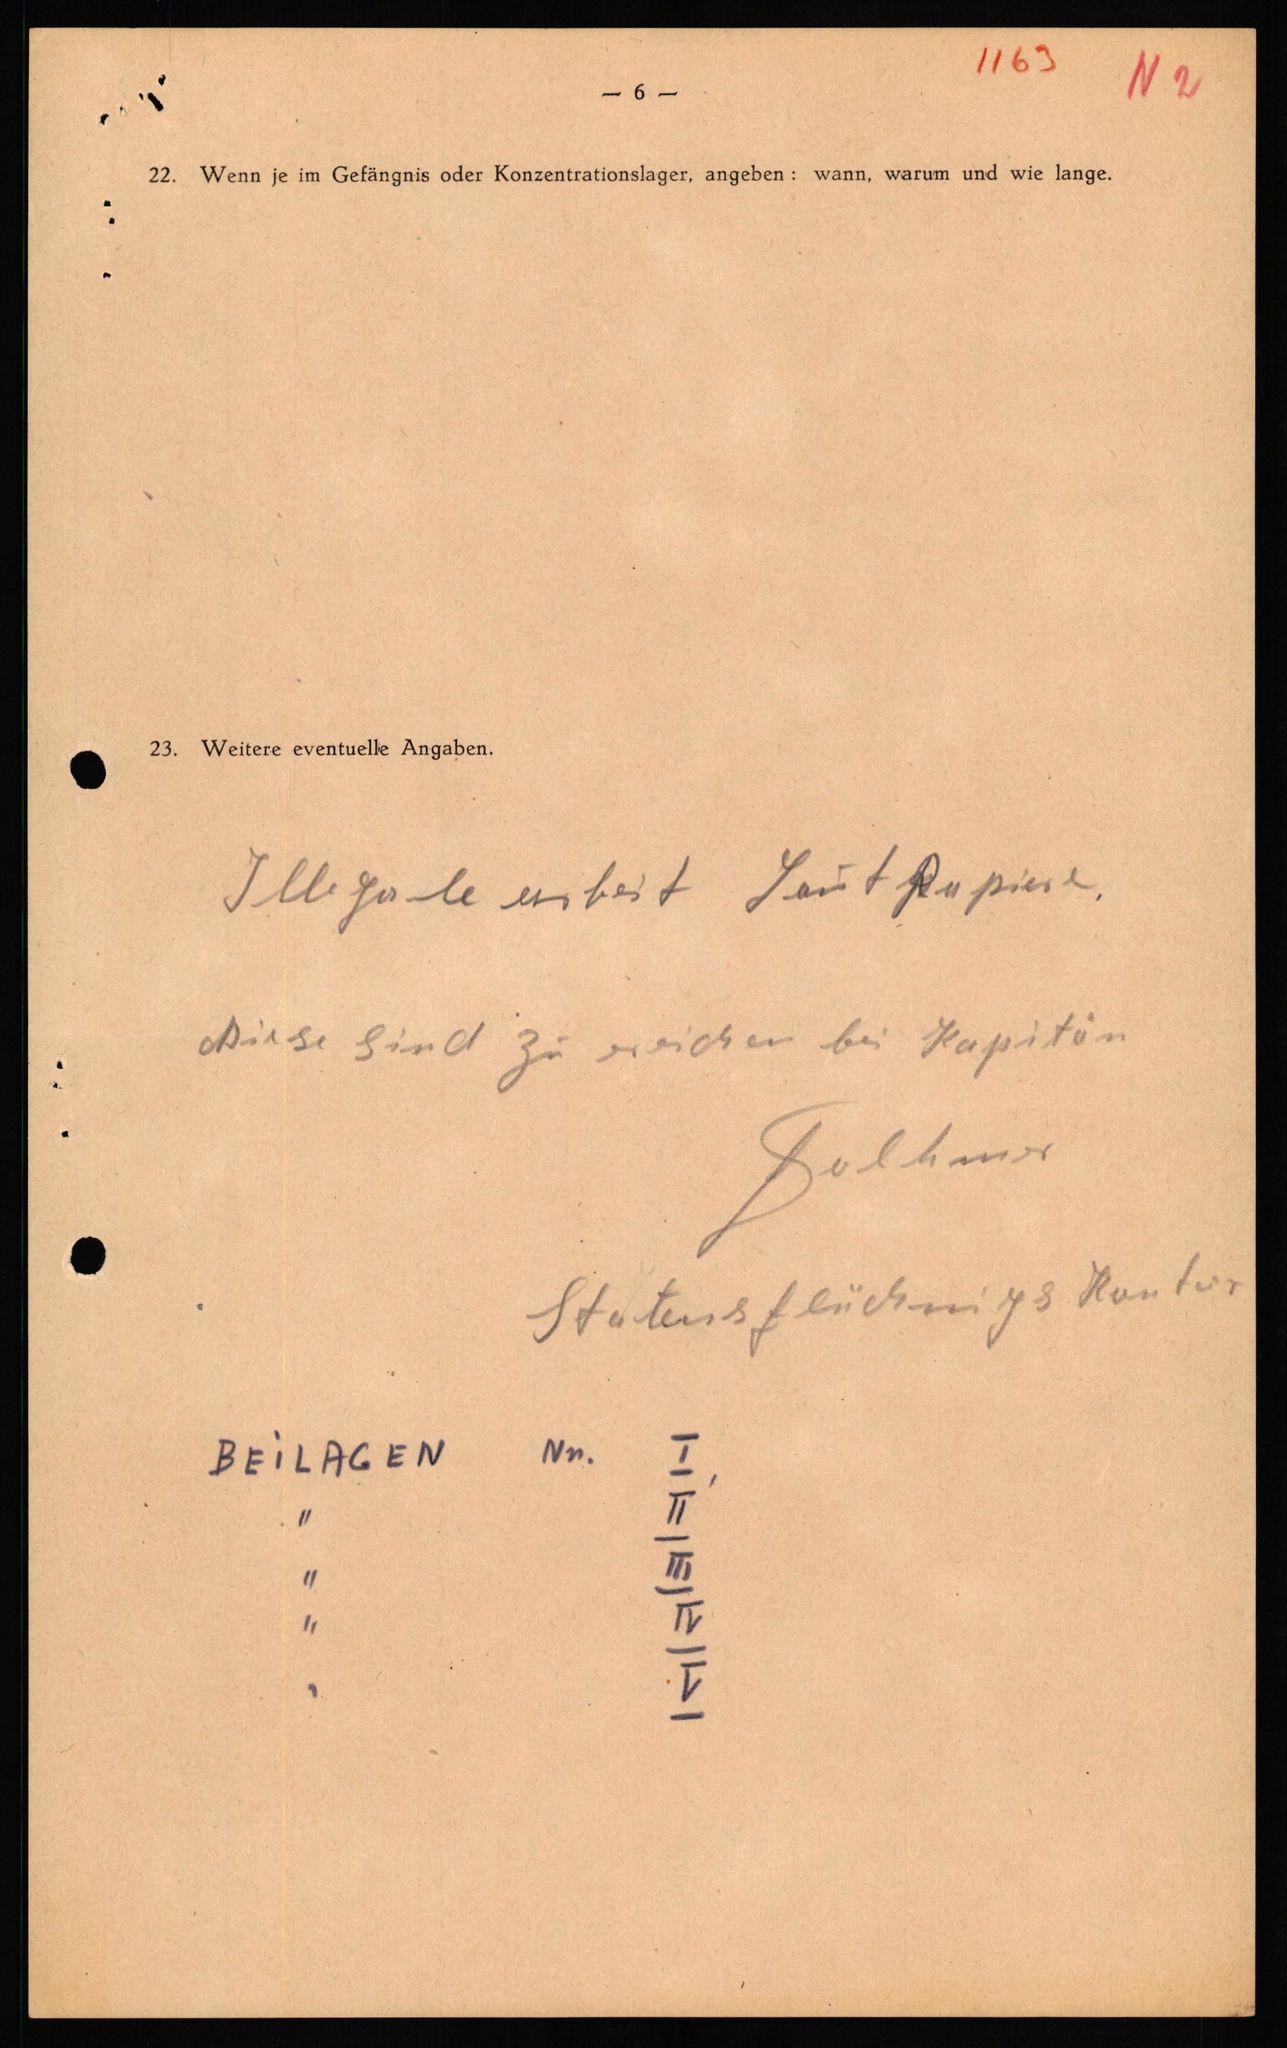 1163 N 2
— 6 —
22. Wenn je im Gefängnis oder Konzentrationslager, angeben: wann, warum und wie lange.
23. Weitere eventuelle Angaben.
Illegale arbeit Laut Papiere.
Diese sind zu ereichen bei Kapitän
Statensflüchnigs Kontor
BEiLAGEN Nr. I,
" II
" III
" IV
" V